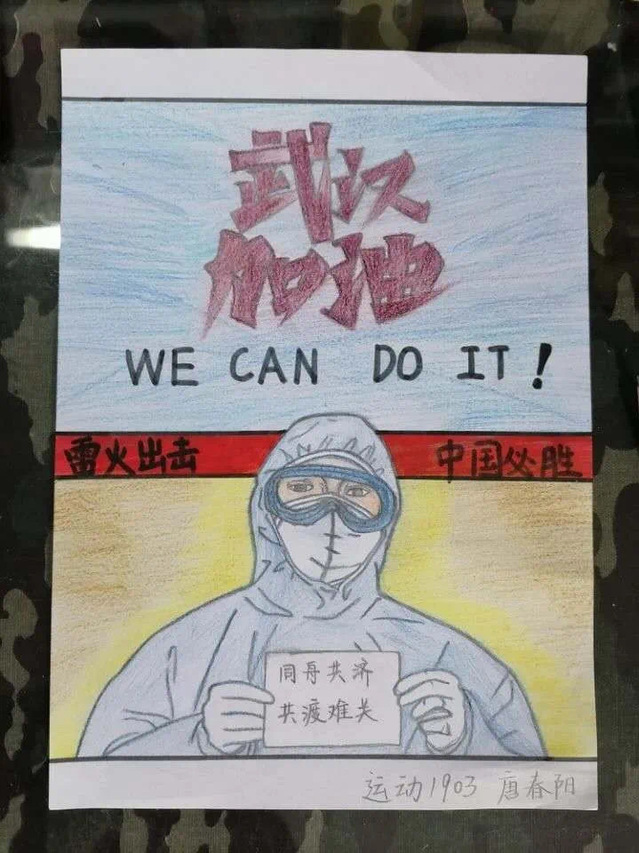 武汉
加油
WE CAN DO IT!
雷火出击 中国必胜
同舟共济
共渡难关
运动1903 唐春阳